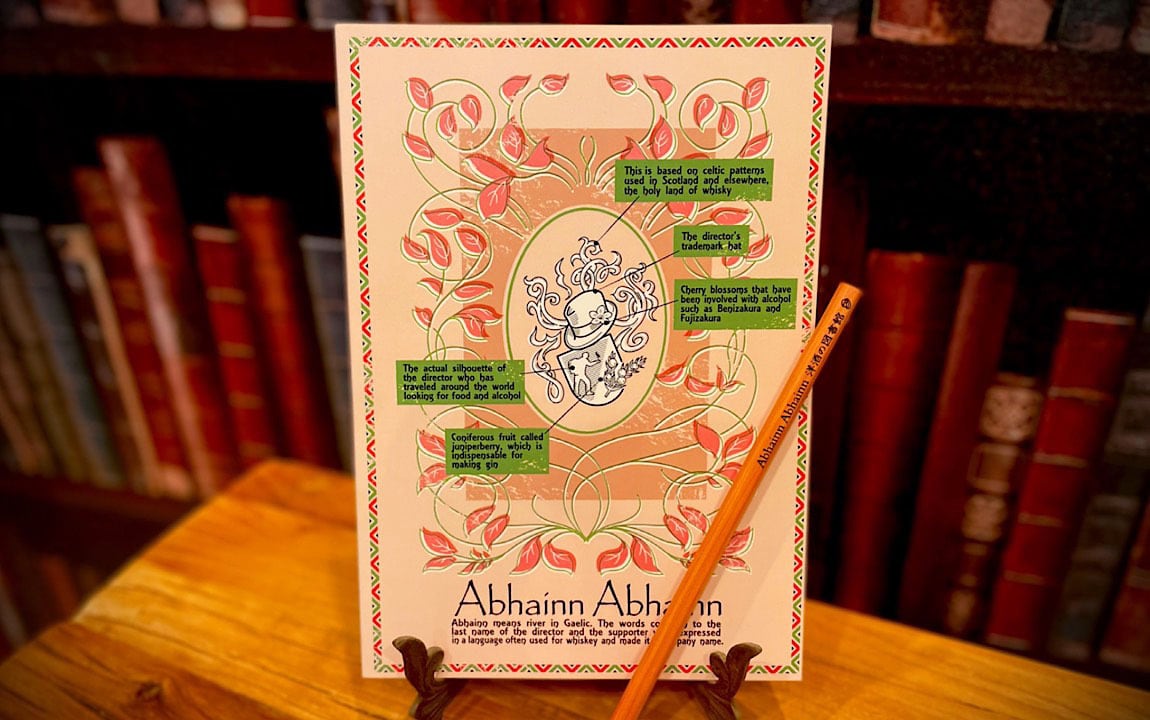 This is based on celtic patterns
used in Scotland and elsewhere,
the holy land of whisky
The director's
trademark hat
Cherry blossoms that have
been involved with alcohol
such as Benizakura and
Fujizakura
The actual silhouette of
the director who has
traveled around the world
looking for food and alcohol
Coniferous fruit called
juniperberry, which is
indispensable for
making gin
Abhainn Abhainn 洋酒の図書館
Abhainn
Abhainn means river in Gaelic. The words to the
last name of the director and the supporter expressed
in a language often used for whiskey and made name.